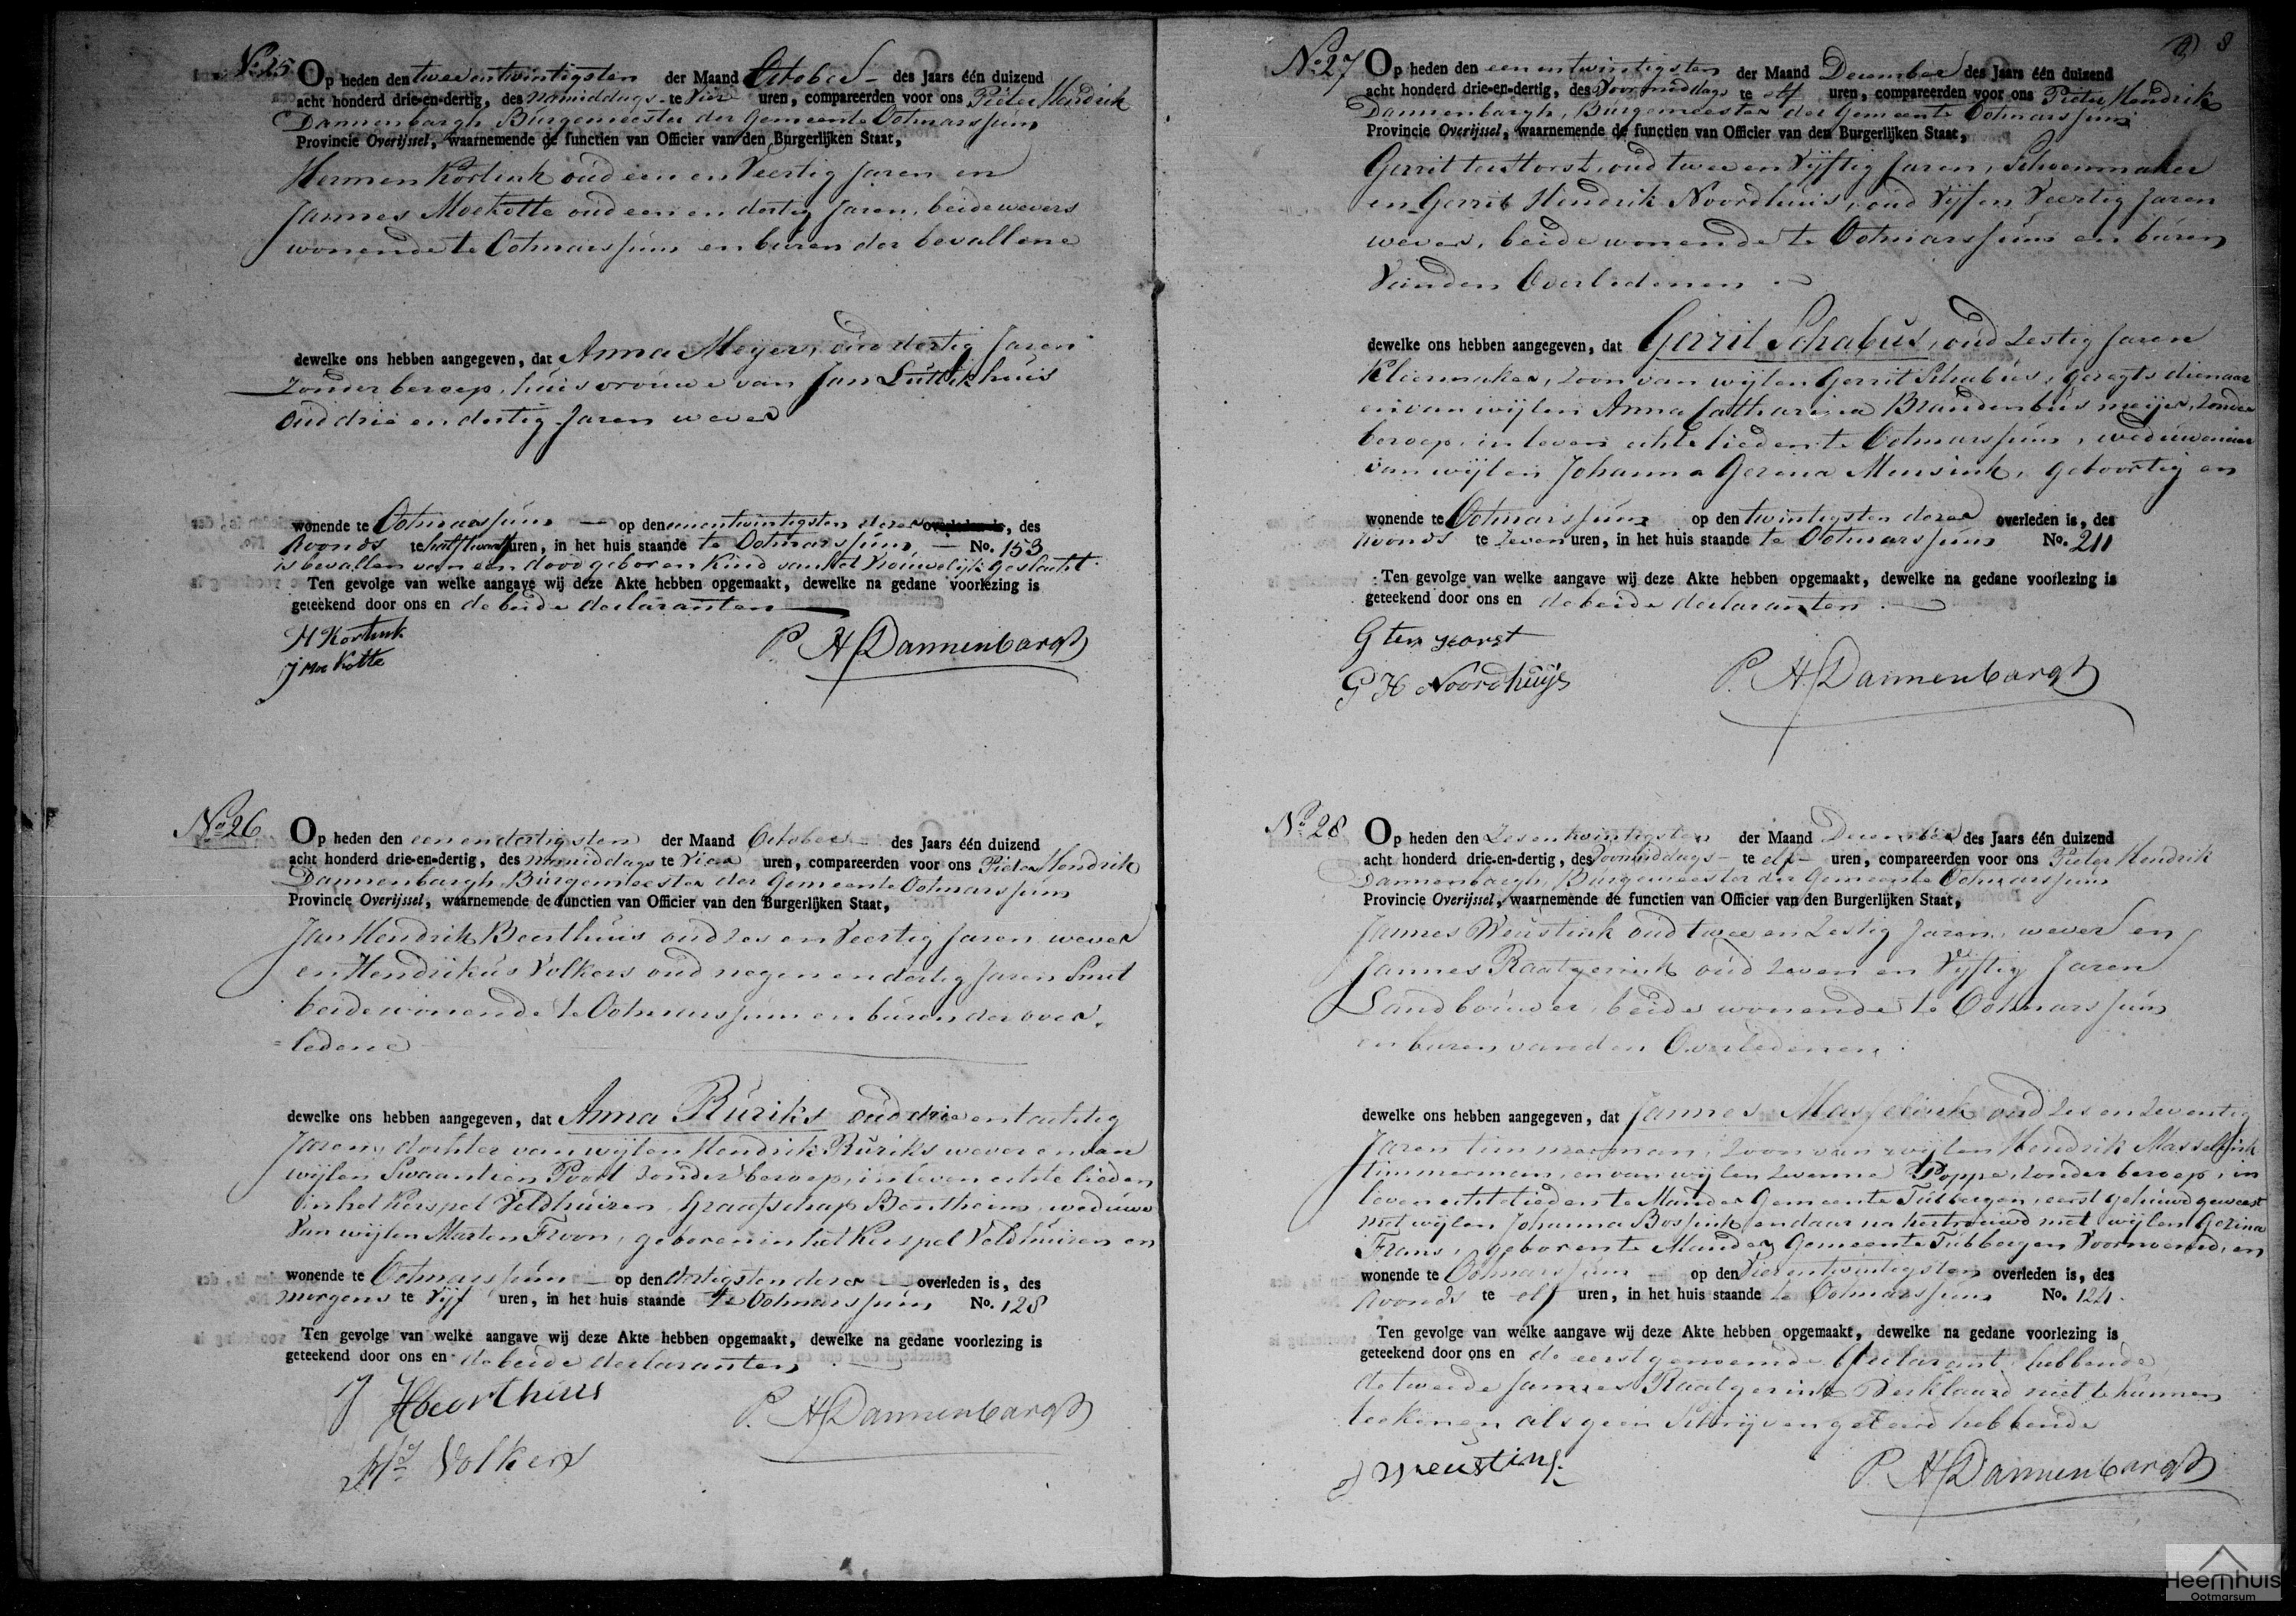 No. 25 Op heden den twee en twintigsten der Maand October des Jaars één duizend
acht honderd drie-en-dertig, des namiddags te Vier uren, compareerden voor ons Pieter Hendrik
Dannenbargh, Burgemeester der Gemeente Ootmarssum
Provincie Overijssel, waarnemende de functien van Officier van den Burgerlijken Staat,
Hermen Kortink oud een en Veertig Jaren en
Jannes Moekotte oud een en dertig Jaren, beide wevers
wonende te Ootmarssum en buren der bevallene
dewelke ons hebben aangegeven, dat Anna Meyer, oud dertig Jaren
zonder beroep, huisvrouwe van Jan Luttikhuis
oud drie en dertig Jaren wever
wonende te Ootmarssum op den eenentwintigsten dezer overleden is, des
Avonds te half twaalf uren, in het huis staande te Ootmarssum No. 153
is bevallen van een dood geboren Kind van het Vrouwelijk geslacht.
Ten gevolge van welke aangave wij deze Akte hebben opgemaakt, dewelke na gedane voorlezing is
geteekend door ons en de beide declaranten
H Kortink
J Moekotte
P. H. Dannenbargh
No. 26 Op heden den een en dertigsten der Maand October des Jaars één duizend
acht honderd drie-en-dertig, des namiddags te Vier uren, compareerden voor ons Pieter Hendrik
Dannenbargh, Burgemeester der Gemeente Ootmarssum
Provincie Overijssel, waarnemende de functien van Officier van den Burgerlijken Staat,
Jan Hendrik Beerthuis oud zes en Veertig Jaren wever
en Hendrikus Volkers oud negen en dertig Jaren Smit
beide wonende te Ootmarssum en buren der over
ledene
dewelke ons hebben aangegeven, dat Anna Ruriks oud drie en tachtig
Jaren, dochter van wijlen Hendrik Ruriks wever en van
wijlen Swaantien Poort zonder beroep, in leven echte lieden
in het Kerspel Veldhuizen, Graafschap Bentheim, weduwe
van wijlen Marten Froon, geboren in het Kerspel Veldhuizen en
wonende te Ootmarssum op den dertigsten dezer overleden is, des
morgens te Vijf uren, in het huis staande te Ootmarssum No. 128
Ten gevolge van welke aangave wij deze Akte hebben opgemaakt, dewelke na gedane voorlezing is
geteekend door ons en de beide declaranten
J H beerthuis
Hs Volkers
P. H. Dannenbargh
8
No. 27 Op heden den een en twintigsten der Maand December des Jaars één duizend
acht honderd drie-en-dertig, des Voormiddags te elf uren, compareerden voor ons Pieter Hendrik
Dannenbargh, Burgemeester der Gemeente Ootmarssum
Provincie Overijssel, waarnemende de functien van Officier van den Burgerlijken Staat,
Gerrit ten Horst, oud twee en Vijftig Jaren, Schoenmaker
en Gerrit Hendrik Noordhuis, oud Vijf en Veertig Jaren
wever, beide wonende te Ootmarssum en buren
van den Overledenen
dewelke ons hebben aangegeven, dat Gerrit Schabus, oud zestig Jaren
Kleermaker, zoon van wijlen Gerrit Schabus, geregts dienaar
en van wijlen Anna Catharina Brandenbusmeijer, zonder
beroep, in leven echte lieden te Ootmarssum, weduwenaar
van wijlen Johanna Gezina Mensink, geboortig en
wonende te Ootmarssum op den twintigsten dezer overleden is, des
Avonds te zeven uren, in het huis staande te Ootmarssum No. 211
Ten gevolge van welke aangave wij deze Akte hebben opgemaakt, dewelke na gedane voorlezing is
geteekend door ons en de beide declaranten
G ten Horst
G H Noordhuijs
P. H. Dannenbargh
No. 28 Op heden den Zes en twintigsten der Maand December des Jaars één duizend
acht honderd drie-en-dertig, des Voormiddags te elf uren, compareerden voor ons Pieter Hendrik
Dannenbargh, Burgemeester der Gemeente Ootmarssum
Provincie Overijssel, waarnemende de functien van Officier van den Burgerlijken Staat,
Jannes Weustink oud twee en Zestig Jaren, wever en
Jannes Raatgerink oud zeven en Vijftig Jaren
Landbouwer, beide wonende te Ootmarssum
en buren van den Overledenen.
dewelke ons hebben aangegeven, dat Jannes Masselink oud zes en zeventig
Jaren timmerman, zoon van wijlen Hendrik Masselink
timmerman, en van wijlen Zwenne Poppe, zonder beroep, in
leven echte lieden te Mander Gemeente Tubbergen, eerst gehuwd geweest
met wijlen Johanna Bossink, en daar na hertrouwd met wijlen Gezina
Frans, geboren te Mander, Gemeente Tubbergen Voornoemd, en
wonende te Ootmarssum op den Vier en twintigsten overleden is, des
Avonds te elf uren, in het huis staande te Ootmarssum No. 121.
Ten gevolge van welke aangave wij deze Akte hebben opgemaakt, dewelke na gedane voorlezing is
geteekend door ons en de eerstgenoemde declarant, hebbende
de tweede Jannes Raatgerink Verklaard niet te kunnen
teekenen als geen Schrijven geleerd hebbende
J Weustink
P. H. Dannenbargh
Heemhuis
Ootmarsum